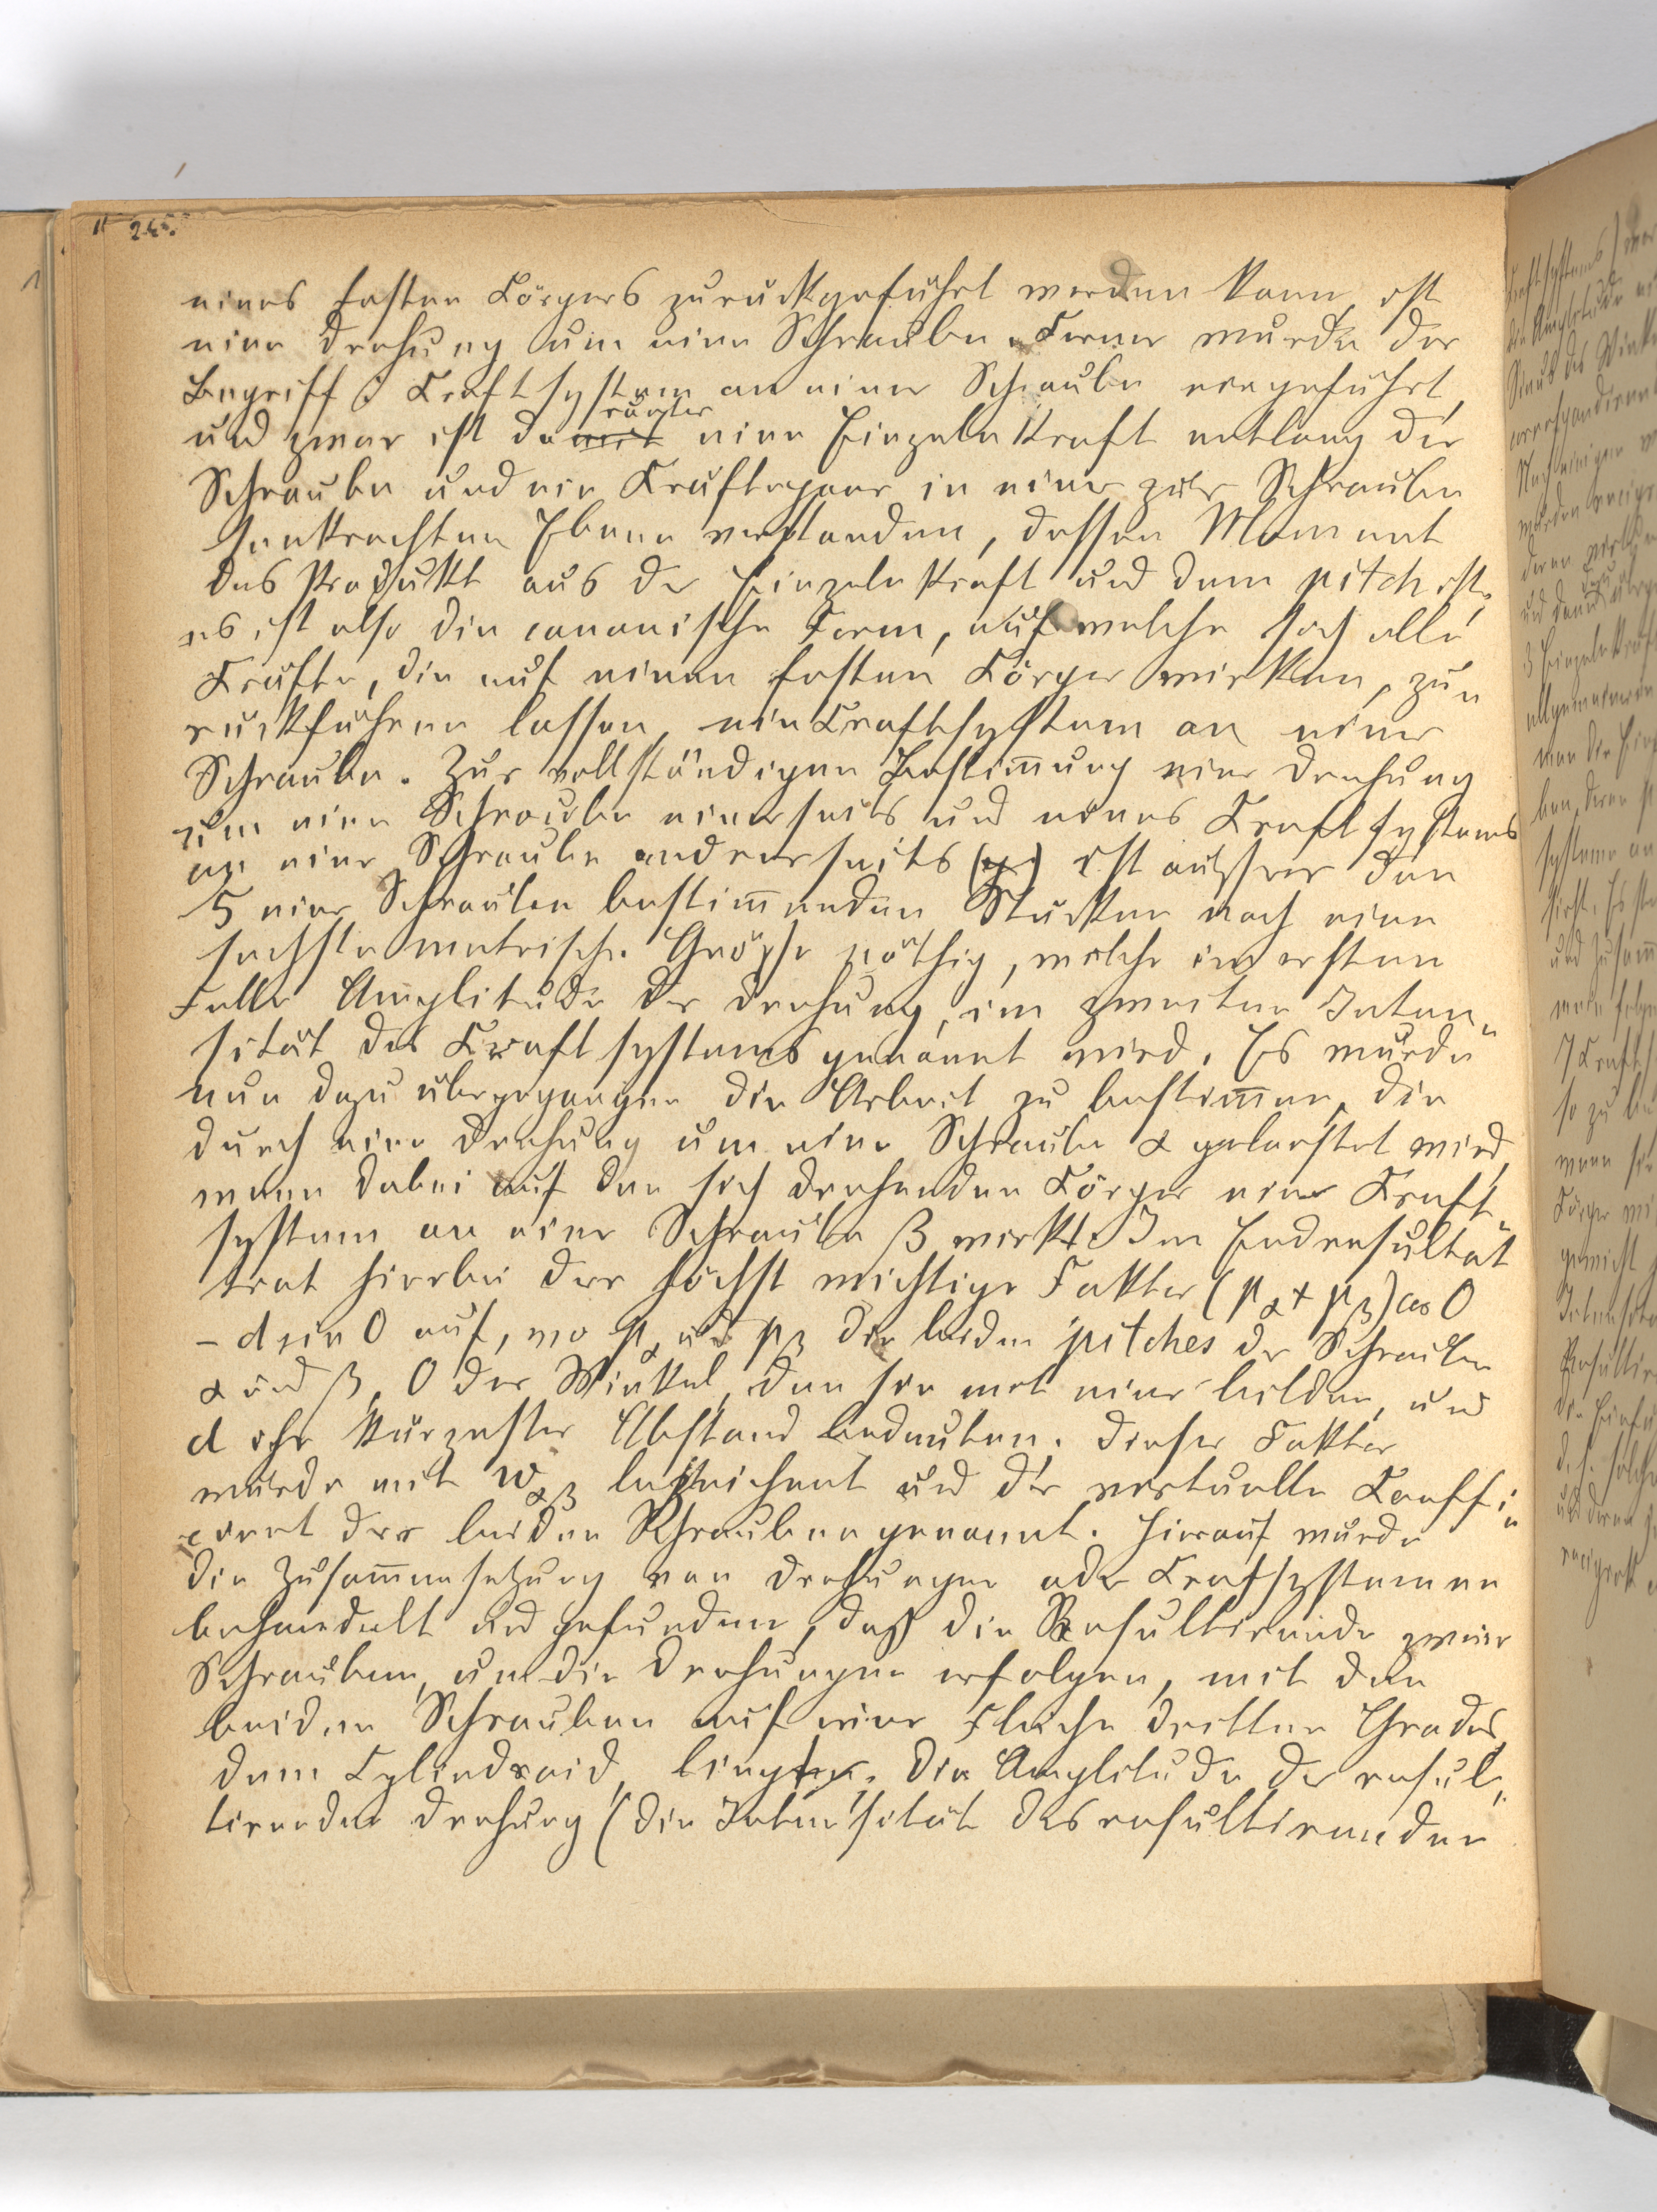 245.
eines festen Körpers zurückgeführt werden kann, ist
eine Drehung um eine Schraube. Ferner wurde der
Begriff: Kraftsystem an einer Schraube eingeführt,
runter
und zwar ist damit eine Einzelnkraft entlang der
Schraube und ein Kräftepaar in einer zur Schraube
senkrechten Ebene verstanden, dessen Moment
das Produkt aus der Einzelnkraft und dem pitch ist,
es ist also die canonische Form, auf welche sich alle
Kräfte, die auf einen festen Körper wirken, zu„
rückführen lassen, ein Kraftsystem an einer
Schraube. Zur vollständigen Bestim̅ung einer Drehung
um eine Schraube einerseits und eines Kraftsystems
an einer Schraube andrerseits ist ausser den
5 eine Schraube bestim̅enden Stücken noch eine
sechste metrische Grösse nöthig, welche im ersten
Falle Amplitude der Drehung, im zweiten Inten„
sität des Kraftsystems genannt wird. Es wurde
nun dazu übergegangen die Arbeit zu bestim̅en, die
durch eine Drehung um eine Schraube α geleistet wird,
wenn dabei auf den sich drehenden Körper ein Kraft„
system an einer Schraube β wirkt. Im Endresultat
trat hierbei der höchst wichtige Faktor (pα + pβ) cos O
– d sin O auf, wo pα und pβ die beiden pitches der Schrauben
α und β, O der Winkel, den sie mit einer bilden, und
d ihr kürzester Abstand bedeuten. Dieser Faktor
wurde mit wαβ bezeichnet und der virtuelle Coeffi„
cient der beiden Schrauben genannt. Hierauf wurde
die Zusam̅ensetzung von Drehungen oder Krafsystemen
behandelt und gefunden, daß die Resultirende zweier
Schrauben, um die Drehungen erfolgen, mit den
beiden Schrauben auf einer Fläche dritten Grades,
dem Cylindroid, liegt. Die Amplitude der resul„
tirenden Drehung (die Intensität des resultirenden